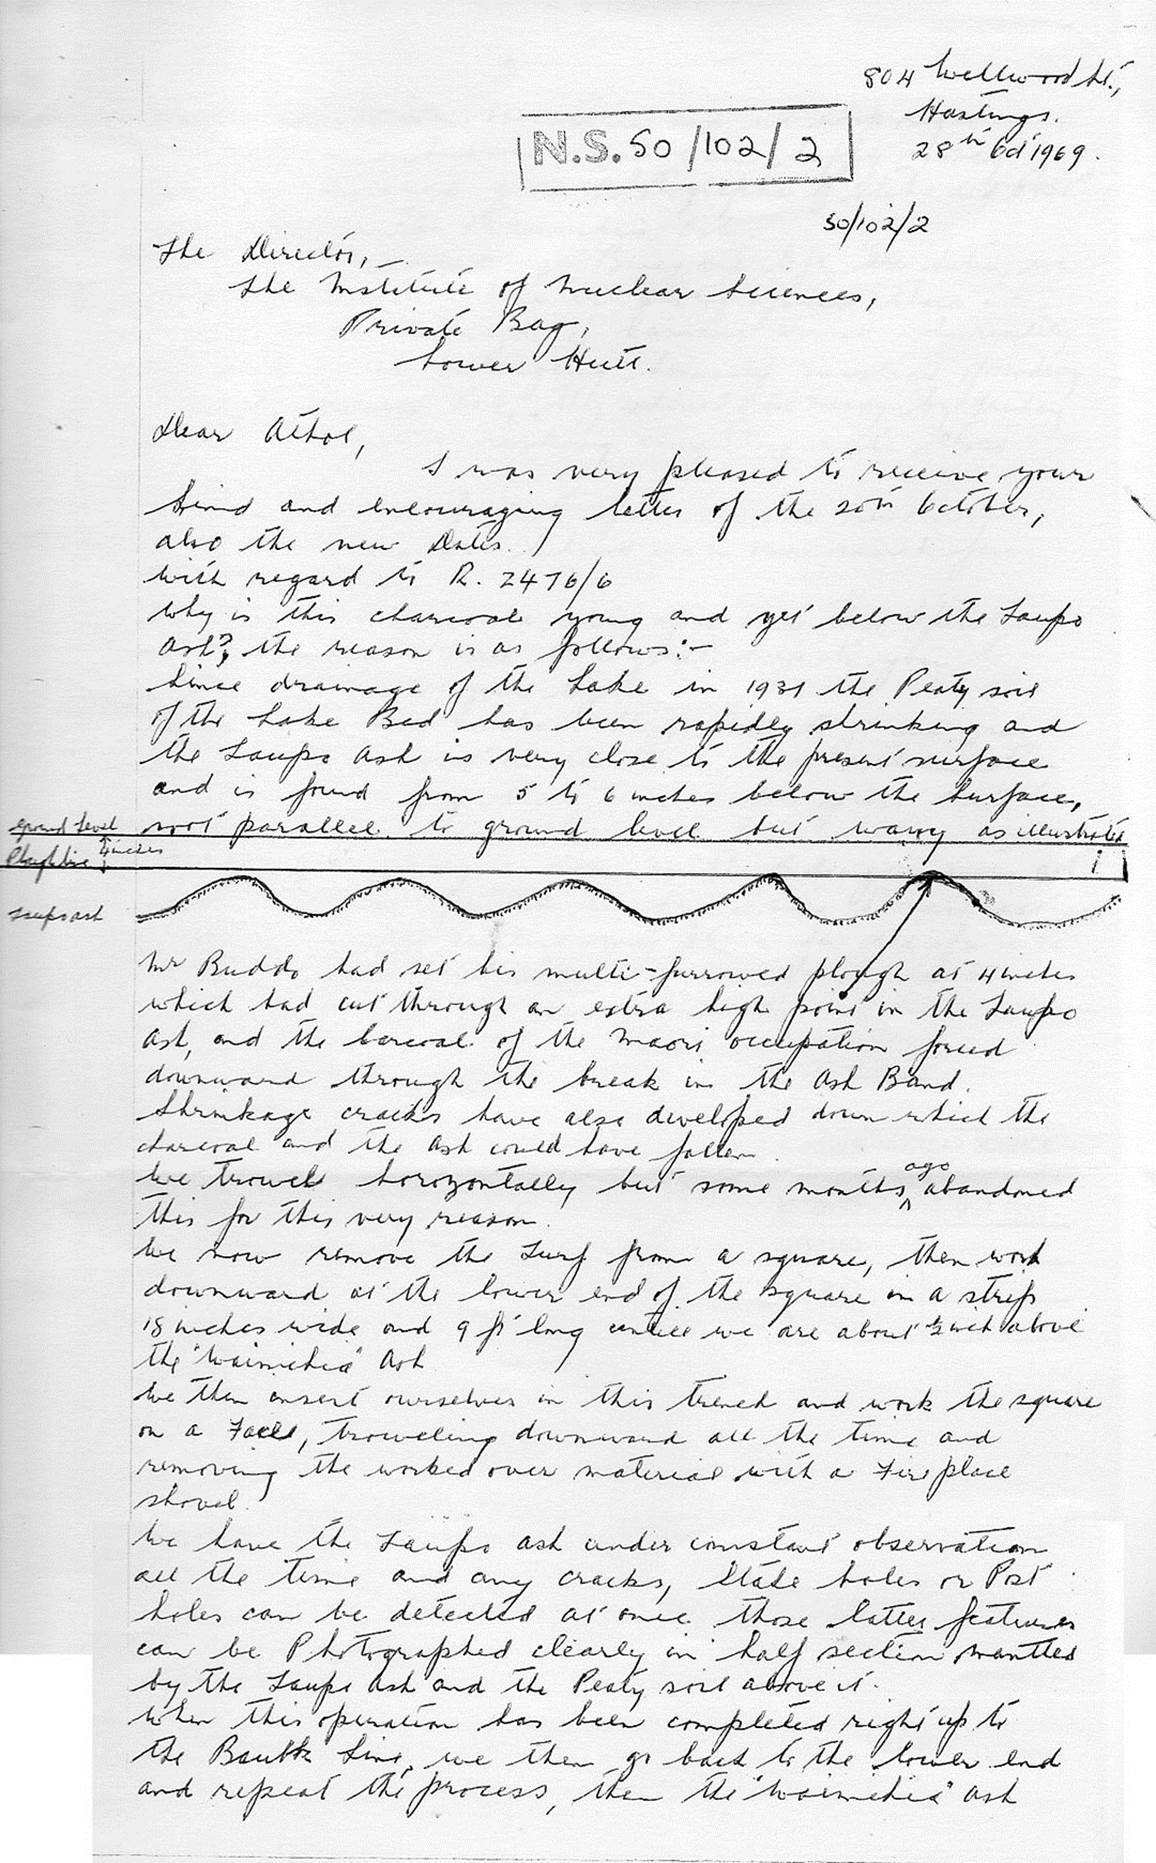 804 Wellwood St.,
Hastings.
28th Oct 1969.
N.S. 50/102/2
50/102/2
The Director,
The Institute of Nuclear Sciences,
Private Bag,
Lower Hutt.
Dear Athol,
I was very pleased to receive your
kind and encouraging letter of the 20th October,
also the new Dates.
With regard to R. 2476/6
Why is this charcoal young and yet below the Taupo
Ash?, the reason is as follows:-
Since drainage of the Lake in 1931 the Peaty soil
of the Lake Bed has been rapidly shrinking and
the Taupo Ash is very close to the present surface
and is found from 5 to 6 inches below the surface,
not parallel to ground level but wavy as illustrated
ground level
Plough line 4 inches
Taupo ash
Mr Buddo had set his multi-furrowed plough at 4 inches
which had cut through an extra high point in the Taupo
Ash, and the of the Maori occupation forced
downward through the break in the Ash Band.
Shrinkage cracks have also developed down which the
charcoal and the Ash could have fallen.
We trowel horizontally but some months ago abandoned
this for this very reason.
We now remove the Turf from a square, then work
downward at the lower end of the square in a strip
18 inches wide and 9 ft long until we are about ½ inch above
the "Waimihia" Ash
We then insert ourselves in this trench and work the square
on a Face, troweling downward all the time and
removing the worked over material with a Fire place
shovel.
We have the Taupo ash under constant observation
all the time and any cracks, Stake holes or Post
holes can be detected at once those latter features
can be Photographed clearly in half section mantled
by the Taupo Ash and the Peaty soil above it.
When this operation has been completed right up to
the Baulk Line, we then go back to the lower end
and repeat the process, then the "Waimihia" Ash